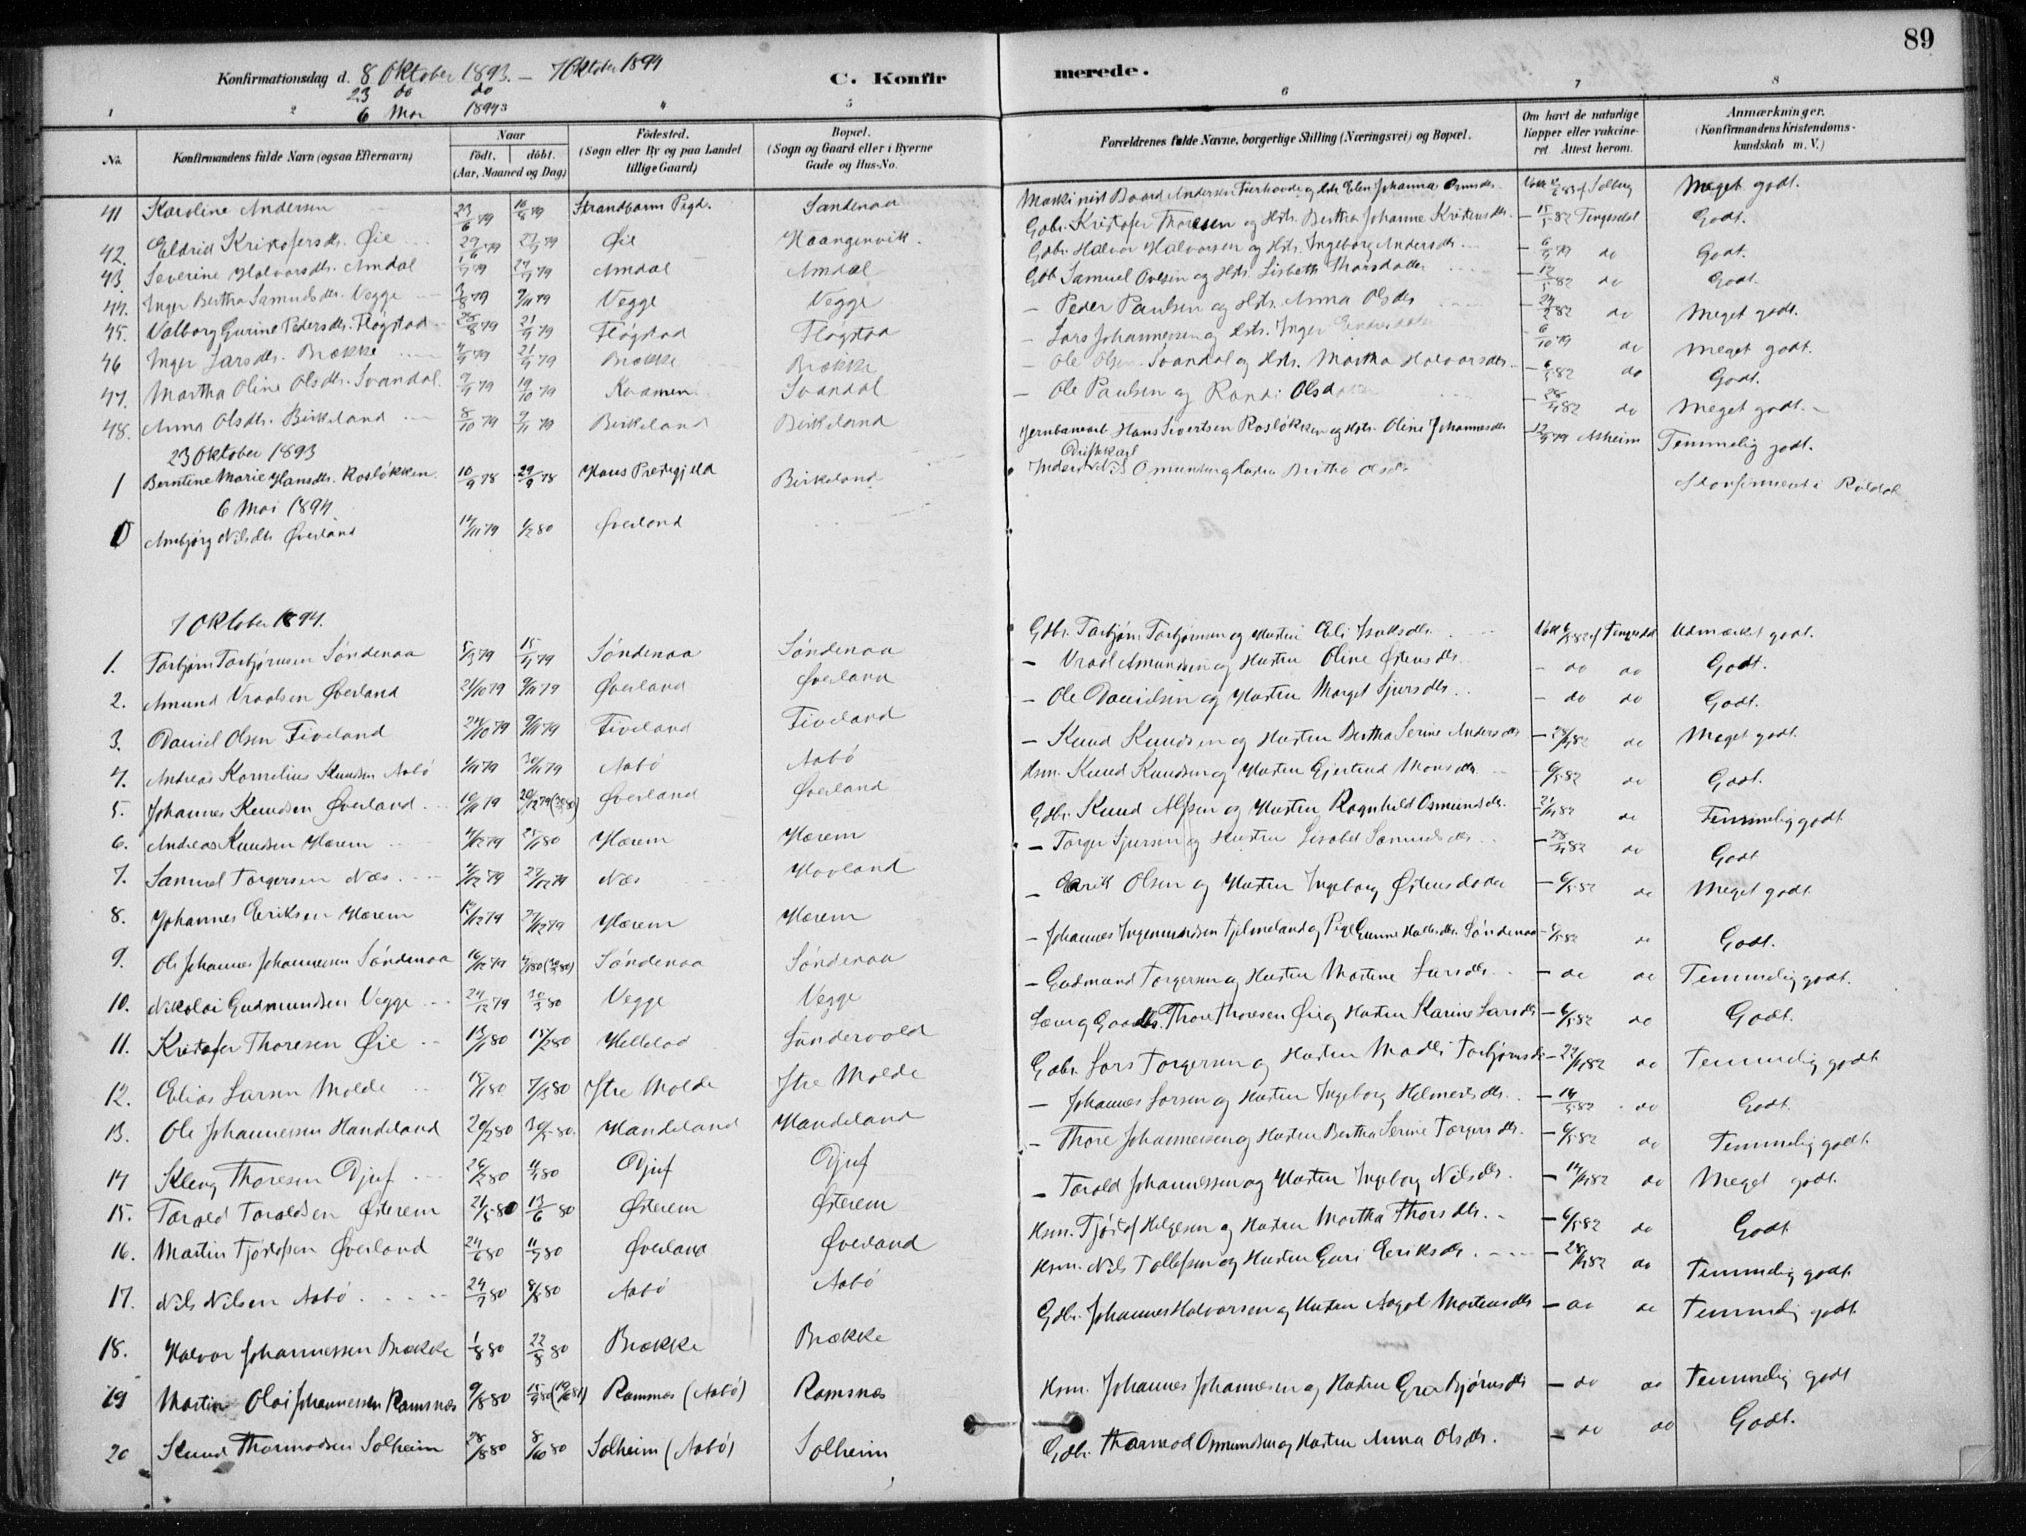 89
Konfirmationsdag d. 8 Oktober 1893. – 7 Oktober 1894 C. Konfirmerede.
23 do do
6 Mai 1894
1 2 5 6 7 8
No. Konfirmandens fulde Navn (ogsaa Efternavn) Naar født. døbt. (Aar, Maaned og Dag) Fødested. (Sogn eller By og paa Landet tillige Gaard) Bopæl. (Sogn og Gaard eller i Byerne Gade og Hus-No. Forældrenes fulde Navne, borgerlige Stilling (Næringsvei) og Bopæl. Om havt de naturlige Kopper eller vakcineret. Attest herom. Anmærkninger. (Konfirmandens Kristendomskundskab m. V.)
41 Karoline Andersen 23/6 79 10/8 79 Strandbarm Prgd. Sandenaa Maskinist Baard Andersen og Hst. Elen Johanna Meget godt.
42. Eldrid Kristofersdtr. Øie Øie Haangenvik. Gdbr. Kristofer Thoresen og Hstr. Bertha Johanne Kristensdtr. – 15/5 82 Tengesdal Godt.
43. Severine Halvorsdtr. Amdal Amdal Amdal Gdbr. Halvor Halvorsen og Hstr. Ingeborg Andersdtr. do Godt.
44. Inger Bertha Samuelsdtr. Vegge 3/8 79 9/11 79 Vegge Vegge Gdb. Samuel Ovesen og Hstr. Lisbeth Thorsdatter do Godt.
45. Valborg Gurine Pedersdtr. Fløgstad 28/8 79 21/9 79 Fløgstad Fløgstad – Peder Paulsen og Hstr. Anna Olsdtr do Meget godt.
46 Inger Larsdtr. Brække 4/9 79 21/9 79 Brække Brække – Lars Johannessen og Hstr. Inger do Meget godt.
47. Martha Oline Olsdtr. Svandal. 9/9 79 19/10 79 Kvamen Svandal – Ole Olsen Svandal og Hstr. Martha Halvorsdtr. – 6/5 82 do Godt.
48. Anna Olsdtr. Birkeland 8/10 79 9/11 79 Birkeland Birkeland – Ole Paulsen og Randi Olsdatter do Meget godt.
23 Oktober 1893
1 Berntine Marie Hansdtr. Rosløkken. 10/9 78 29/9 78 Hans Prestegjeld Birkeland Jernbanearb. Hans Sivertsen Rosløkken og Hstr. Oline Johannesdtr – 12/9 79 Asheim Temmelig godt.
6 Mai 1894.
Ambjørg Nilsdtr Øverland 14/11 79 1/2 80 Øverland Osmundsen og Hustru Bertha Olsdtr Konfirmeret i Røldal
7 Oktober 1894.
1. Torbjørn Torbjørnsen Søndenaa 5/3 79 15/4 79 Søndenaa Søndenaa Gdbr. Torbjørn Torbjørnsen og Hustru Eli Isaksdtr. Vakc 6/5 82 af Tengesdal Udmærket godt.
2. Amund Vraalsen Øverland 21/10 79 9/11 79 Øverland Øverland – Vraal Amundsen og Hustru Oline Østensdtr. – do do Godt.
3. Daniel Olsen Fiveland 24/10 79 9/11 79 Fiveland Fiveland – Ole Danielsen og Hustru Marget Sjursdtr. – do do Godt.
4. Andreas Kornelius Knudsen Aabø 1/11 79 30/11 79 Aabø Aabø – Knud Knudsen og Hustru Bertha Serine Andersdtr – 28/4 82 do Meget godt.
5. Johannes Knudsen Øverland 10/11 79 Øverland Øverland Hsm. Knud Knudsen og Hustru Gjertrud Monsdtr – 6/5 82 do Godt.
6. Andreas Knudsen Hærem 4/12 79 Hærem Hærem Gdbr. Knud Alfsen og Hustru Ragnhild Osmundsdtr. do Temmelig godt
7. Samuel Torgersen Næs Næs Hovland – Torger Sjursen og Hustru Lisabet Samuelsdtr – 28/4 82 do Godt
8. Johannes Eeriksen Hærem 12/12 79 27/12 79 Hærem Hærem – Eerik Olsen og Hustru Ingeborg Østensdatter – 6/5 82 do Meget godt.
9. Ole Johannes Johannessen Søndenaa 16/12 79 Søndenaa Søndenaa – Johannes Ingemundsen Fjelmeland og Pige Gunne Halvdtr. Søndenaa do Godt.
10. Nikolai Gudmundsen Vegge 24/12 79 30/3 80 Vegge Vegge – Gudmund Torgersen og Hustru Martine Larsdtr – do do Temmelig godt.
11. Kristofer Thoresen Øie 13/1 80 15/2 80 Hellelad Søndervold Thore Thoresen Øie og Hustru Karine Larsdtr – 6/5 82 do Godt.
12. Elias Larsen Molde 15/1 80 7/3 80 Itre Molde Itre Molde Gdbr. Lars Torgersen og Hustru Madli Torbjørnsdtr do Temmelig godt
13. Ole Johannessen Handeland 20/2 80 Handeland Handeland – Johannes Larsen og Hustru Ingeborg Helmersdtr. – 14/5 82 do Godt.
14 Kleng Thoresen Djuf 26/2 80 11/4 80 Djuf Djuf – Thore Johannessen og Hustru Bertha Serine Torgersdtr. – 6/5 82 do Temmelig godt.
15. Torald Toraldsen Østerem 21/5 80 13/6 80 Østerem Østerem – Torald Johannessen og Hustru Ingeborg Nilsdtr. do Meget godt.
16. Martin Tjøstofsen Øverland 24/6 80 11/7 80 Øverland Øverland Hsm. Tjøstof Helgesen og Hustru Martha Thorsdtr. – 6/5 82 do Godt
17. Nils Nilsen Aabø 24/7 80 8/8 80 Aabø Aabø Hsm. Nils Tollefsen og Hustru Guri Eeriksdtr. – 28/4 82 do Temmelig godt.
18. Halvor Johannessen Brække 1/8 80 22/8 80 Brække Brække Gdbr. Johannes Halvorsen og Hustru Aagot Mortensdtr – do do Temmelig godt.
19 Martin Olai Johannessen Ramsnæs 9/8 80 Ramsnæs (Aabø) Ramsnæs Hsm. Johannes Johannesen og Hustru Gro Bjørnsdtr – do do Temmelig godt
20 Knud Thormodsen Solheim 28/8 80 8/10 80 Solheim (Aabø) Solheim Gdbr. Thormod Osmundsen og Hustru Anna Olsdtr. – do do Godt.